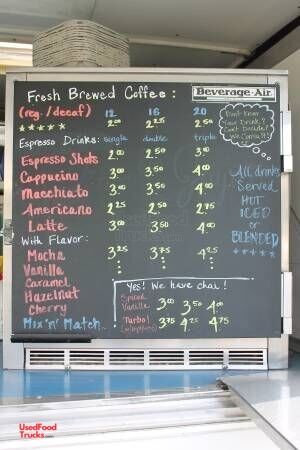 Fresh Brewed Coffee:
Beverage-Air
(reg./decaf) 12 16 20
★★★★★ 2.00 2.25 2.50
Espresso Drinks: single double triple
Espresso Shots 2.00 2.50 3.00
Cappucino 3.00 3.50 4.00
Macchiato 3.00 3.50 4.00
Americano 2.25 2.50 2.75
Latte 3.00 3.50 4.00
With Flavor:
Mocha 3.25 3.75 4.25
Vanilla
Caramel
Hazelnut
Cherry
Mix 'n' Match
Don't Know
Your Drink?
Can't Decide?
All drinks
Served
HOT
ICED
or
BLENDED
★★★★★
Yes! We have chai!
Spiced 3.00 3.50 4.00
Vanilla
3.75 4.25 4.75
UsedFood
Trucks.com